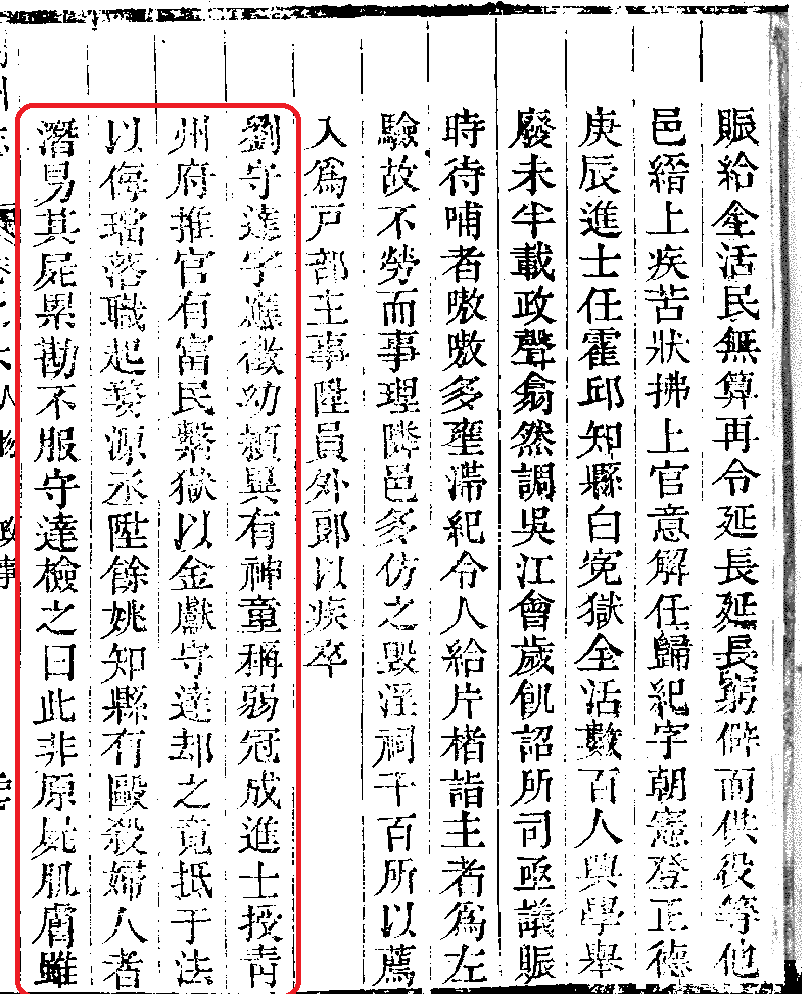 賑給全活民無算再令延長延長窮僻而供役等他
邑縉上疾苦狀拂上官意解任歸紀字朝憲登正德
庚辰進士任霍邱知縣白寃獄全活數百人興學舉
廢未半載政聲翕然調吳江會歲飢詔所司亟議賑
時待哺者嗷嗷多壅滯紀令人給片楮詣主者爲左
驗故不勞而事理隣邑多仿之毀淫祠千百所以薦
入爲戸部主事陞員外郎以疾卒
劉守達字應徵幼穎異有神童稱弱冠成進士授靑
州府推官有富民繫獄以金獻守達却之竟抵于法
以侮璫落職起婺源丞陞餘姚知縣有毆殺婦人者
潛易其屍累勘不服守達檢之曰此非原屍肌膚雖